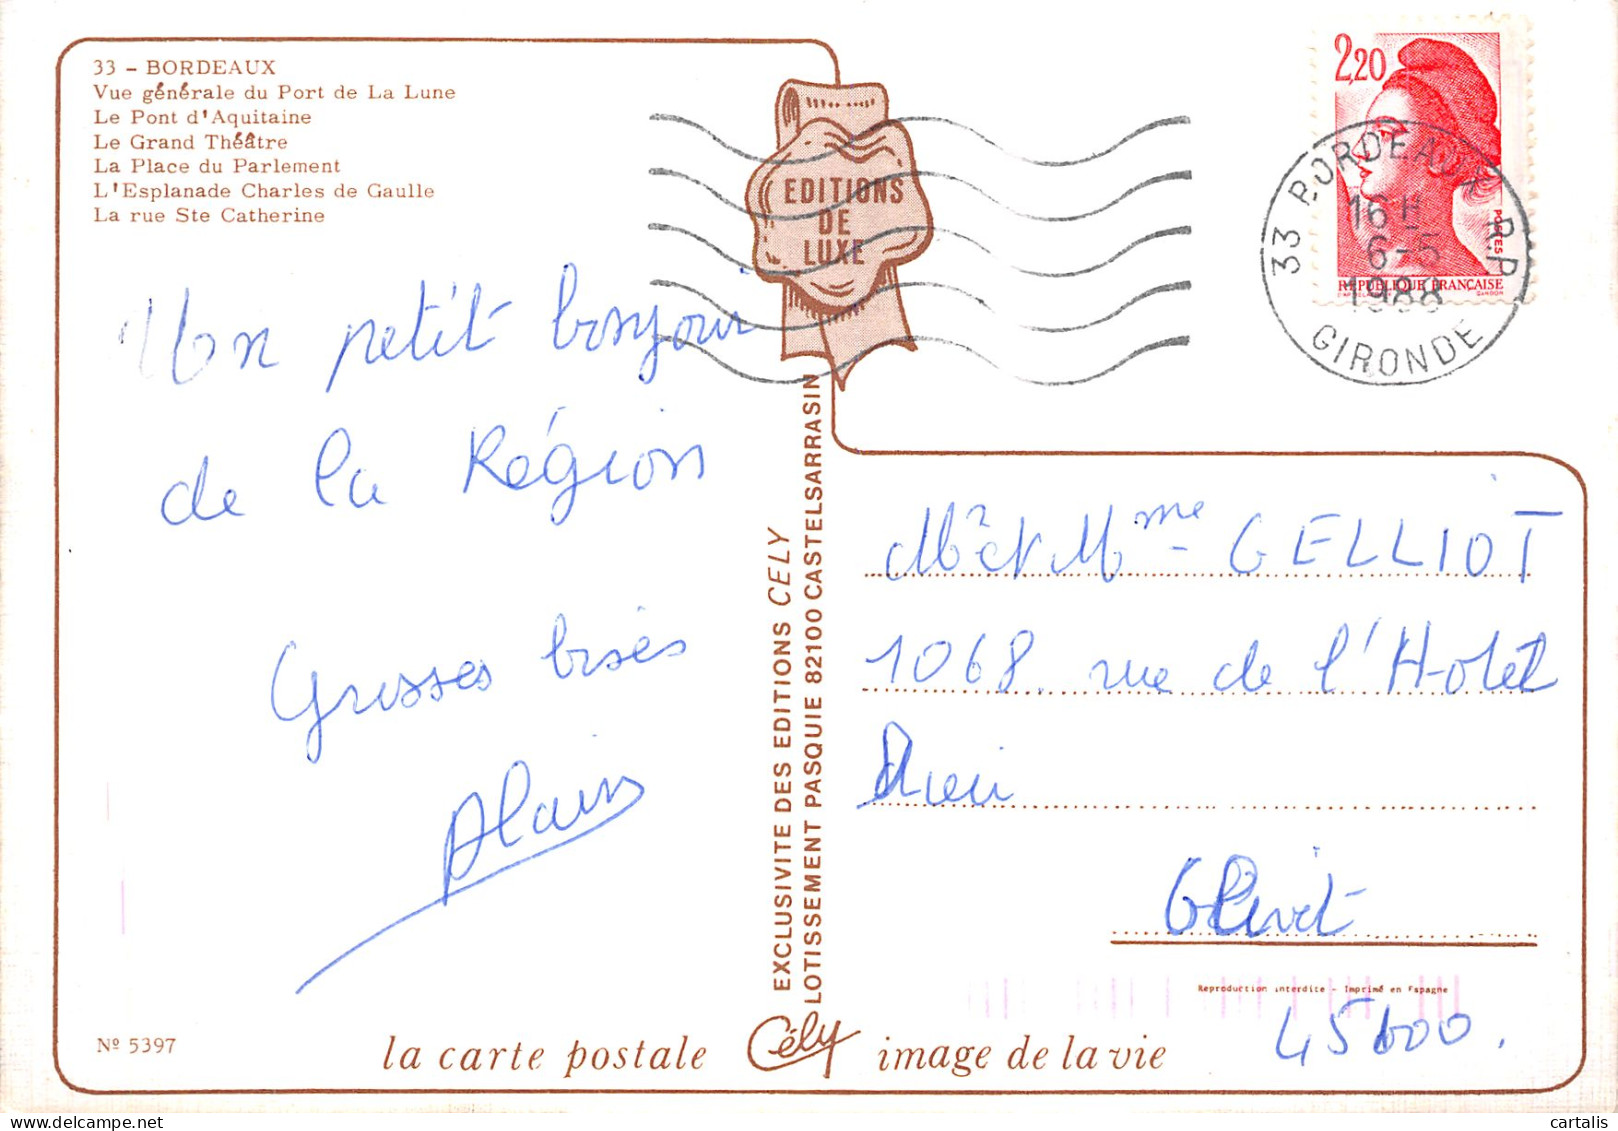 33 - BORDEAUX
Vue générale du Port de La Lune
Le Pont d'Aquitaine
Le Grand Théâtre
La Place du Parlement
L'Esplanade Charles de Gaulle
La rue Ste Catherine
EDITIONS
DE
LUXE
2,20
POSTES
REPUBLIQUE FRANÇAISE
GANDON
33 BORDEAUX R.P.
16 H
6-5
1988
GIRONDE
Un petit bonjour
de la Région
Grosses bises
Alain
EXCLUSIVITE DES EDITIONS CELY
LOTISSEMENT PASQUIE 82100 CASTELSARRASIN
Mr et Mme GELLIOT
1068 rue de l'Hotel
Dieu
Olivet
Reproduction interdite - Imprimé en Espagne
45600.
Nº 5397
la carte postale Cély image de la vie
cartalis